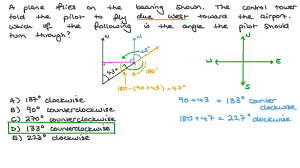 A plane flies on the bearing shown. The control tower
told the pilot to fly due west toward the airport.
Which of the following is the angle the pilot should
turn through?
N
N
43°
43°
180°
180-(90+43)=47°
N
W
E
S
A) 137° clockwise
B) 90° counterclockwise
C) 270° counterclockwise
D) 133° counterclockwise
E) 223° clockwise
90+43 = 133° counter
clockwise
180+47 = 227° clockwise